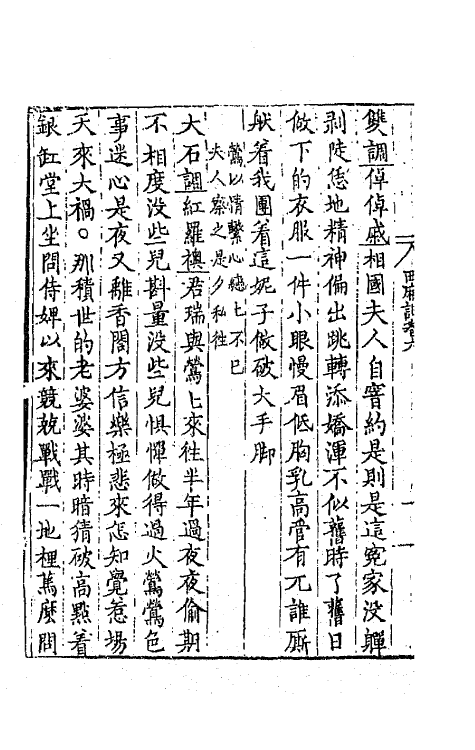 西廂記卷六
一
雙調倬倬戚相國夫人自窨約是則是這寃家没𡰖
剥陡恁地精神偏出跳轉添嬌渾不似舊時了舊日
做下的衣服一件小眼慢眉低胸乳高管有兀誰廝
般着我團着這妮子做破大手脚
鶯以情繫心戀七不已
夫人察之是夕私往
大石調紅羅襖君瑞與鶯七來往半年過夜夜偷期
不相度没些兒斟量没些兒惧憚做得過火鶯鶯色
事迷心是夜又離香閣方信樂極悲來怎知覺惹場
天來大禍○那積世的老婆婆其時暗猜破高點着
銀缸堂上坐問侍婢以來兢兢戰戰一地裡篤麼問